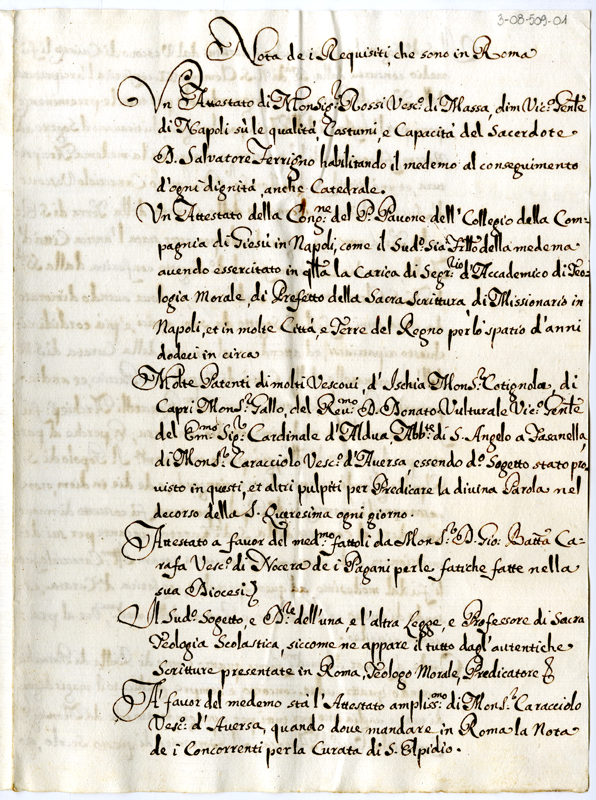 3-08-509-01
Nota de i Requisiti, che sono in Roma
Vn Attestato di Monsig.r Rossi Vesc.o di Massa, dim Vic.o Gente
di Napoli sù le qualità, Costumi, e Capacità del Sacerdote
D. Salvatore Ferrigno habilitando il medemo al conseguimento
d'ogni dignità, anche Catedrale.
Vn Attestato della Cong.ne del P. Pavone dell'Collegio della Com-
pagnia di Giesù in Napoli, come il Sud.o Sia Frllo della medema
auendo essercitato in qlla la Carica di Segr.rio d'Accademico di Teo-
logia Morale, di Prefetto della Sacra Scrittura di Missionario in
Napoli, et in molte Città, e Terre del Regno per lo spatio d'anni
dodeci in circa
Molte Patenti di molti Vescoui, d'Ischia Mons.r Cotignola, di
Capri Mons.r Gallo, del Reu.mo D. Donato Vulturale Vic.o Gente
del Em.mo Sig.r Cardinale d'Aldua, Abb.te di S. Angelo a Fasanella,
di Mons.r Caracciolo Vesc.o d'Aversa essendo d.o Sogetto stato pro-
uisto in questi, et altri pulpiti per Predicare la divina Parola nel
decorso della S. Quresima ogni giorno.
Attestato a favor del med.mo fattoli da Mons.r D. Gio: Batta Ca-
rafa Vesc.o di Nocera de i Pagani per le fatiche fatte nella
sua Diocesi
Il Sud.o Sogetto, e D.re dell'una, e l'altra Legge, e Professore di Sacra
Teologia Scolastica, siccome ne appare il tutto dagl'autentiche
Scritture presentate in Roma, Teologo Morale, Predicatore
A' favor del medemo stà l'Attestato ampliss.mo di Mons.r Caracciolo
Vesc.o d'Aversa, quando doue mandare in Roma la Nota
de i Concorrenti per la Curata di S. Elpidio.